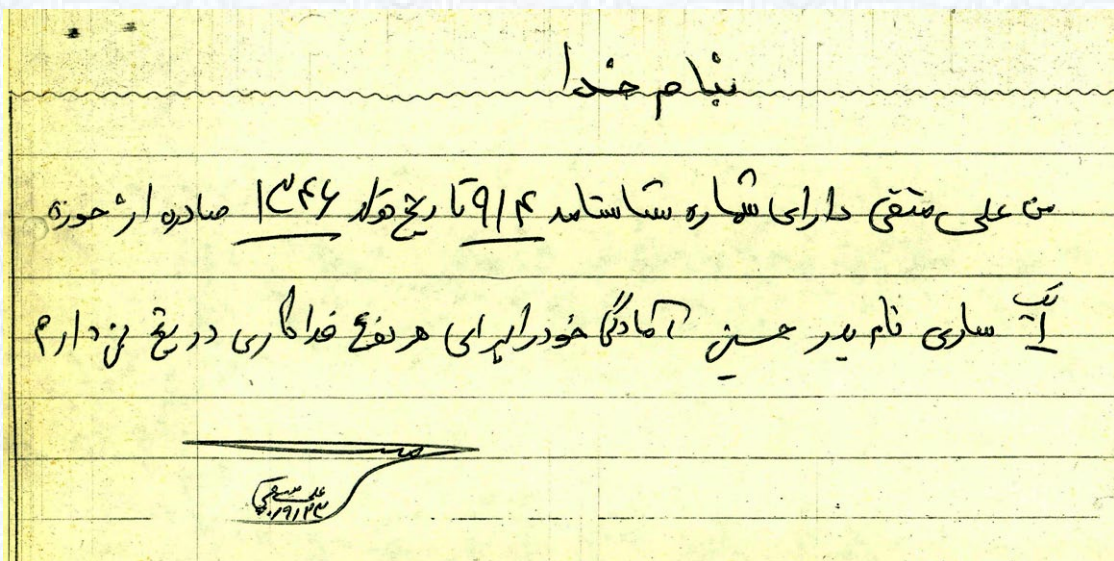 بنام خدا
من علی متقی دارای شماره شناسنامه ۹۱۴ تاریخ تولد ۱۳۴۶ صادره از حوزه
یک ساری نام پدر حسین آمادگی خود را برای هر نوع فداکاری دریغ نمی دارم
علی متقی